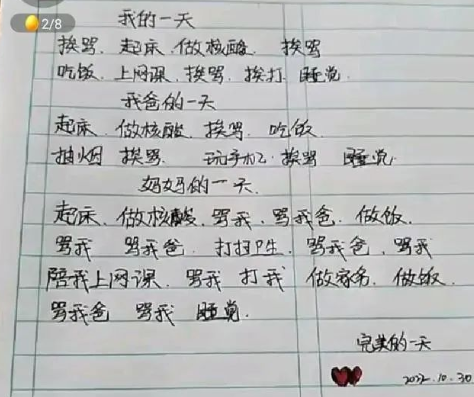 2/8
我的一天
挨骂、起床、做核酸、挨骂
吃饭、上网课、挨骂、挨打、睡觉
我爸的一天
起床、做核酸、挨骂、吃饭
抽烟 挨骂、玩手机、挨骂 睡觉.
妈妈的一天.
起床、做核酸、骂我、骂我爸、做饭、
骂我 骂我爸、打扫卫生、骂我爸、骂我
陪我上网课、骂我 打我 做家务、做饭、
骂我爸 骂我 睡觉.
完美的一天
2022.10.30